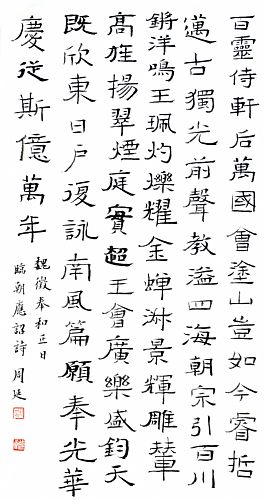 百靈侍軒后萬國會塗山豈如今睿哲
邁古獨光前聲教溢四海朝宗引百川
鏘洋鳴玉珮灼爍耀金蟬淑景輝雕輦
高旌揚翠煙庭實超王會廣樂盛鈞天
既欣東日戶復詠南風篇願奉光華
慶從斯億萬年
魏徵奉和正日
臨朝應詔詩 周